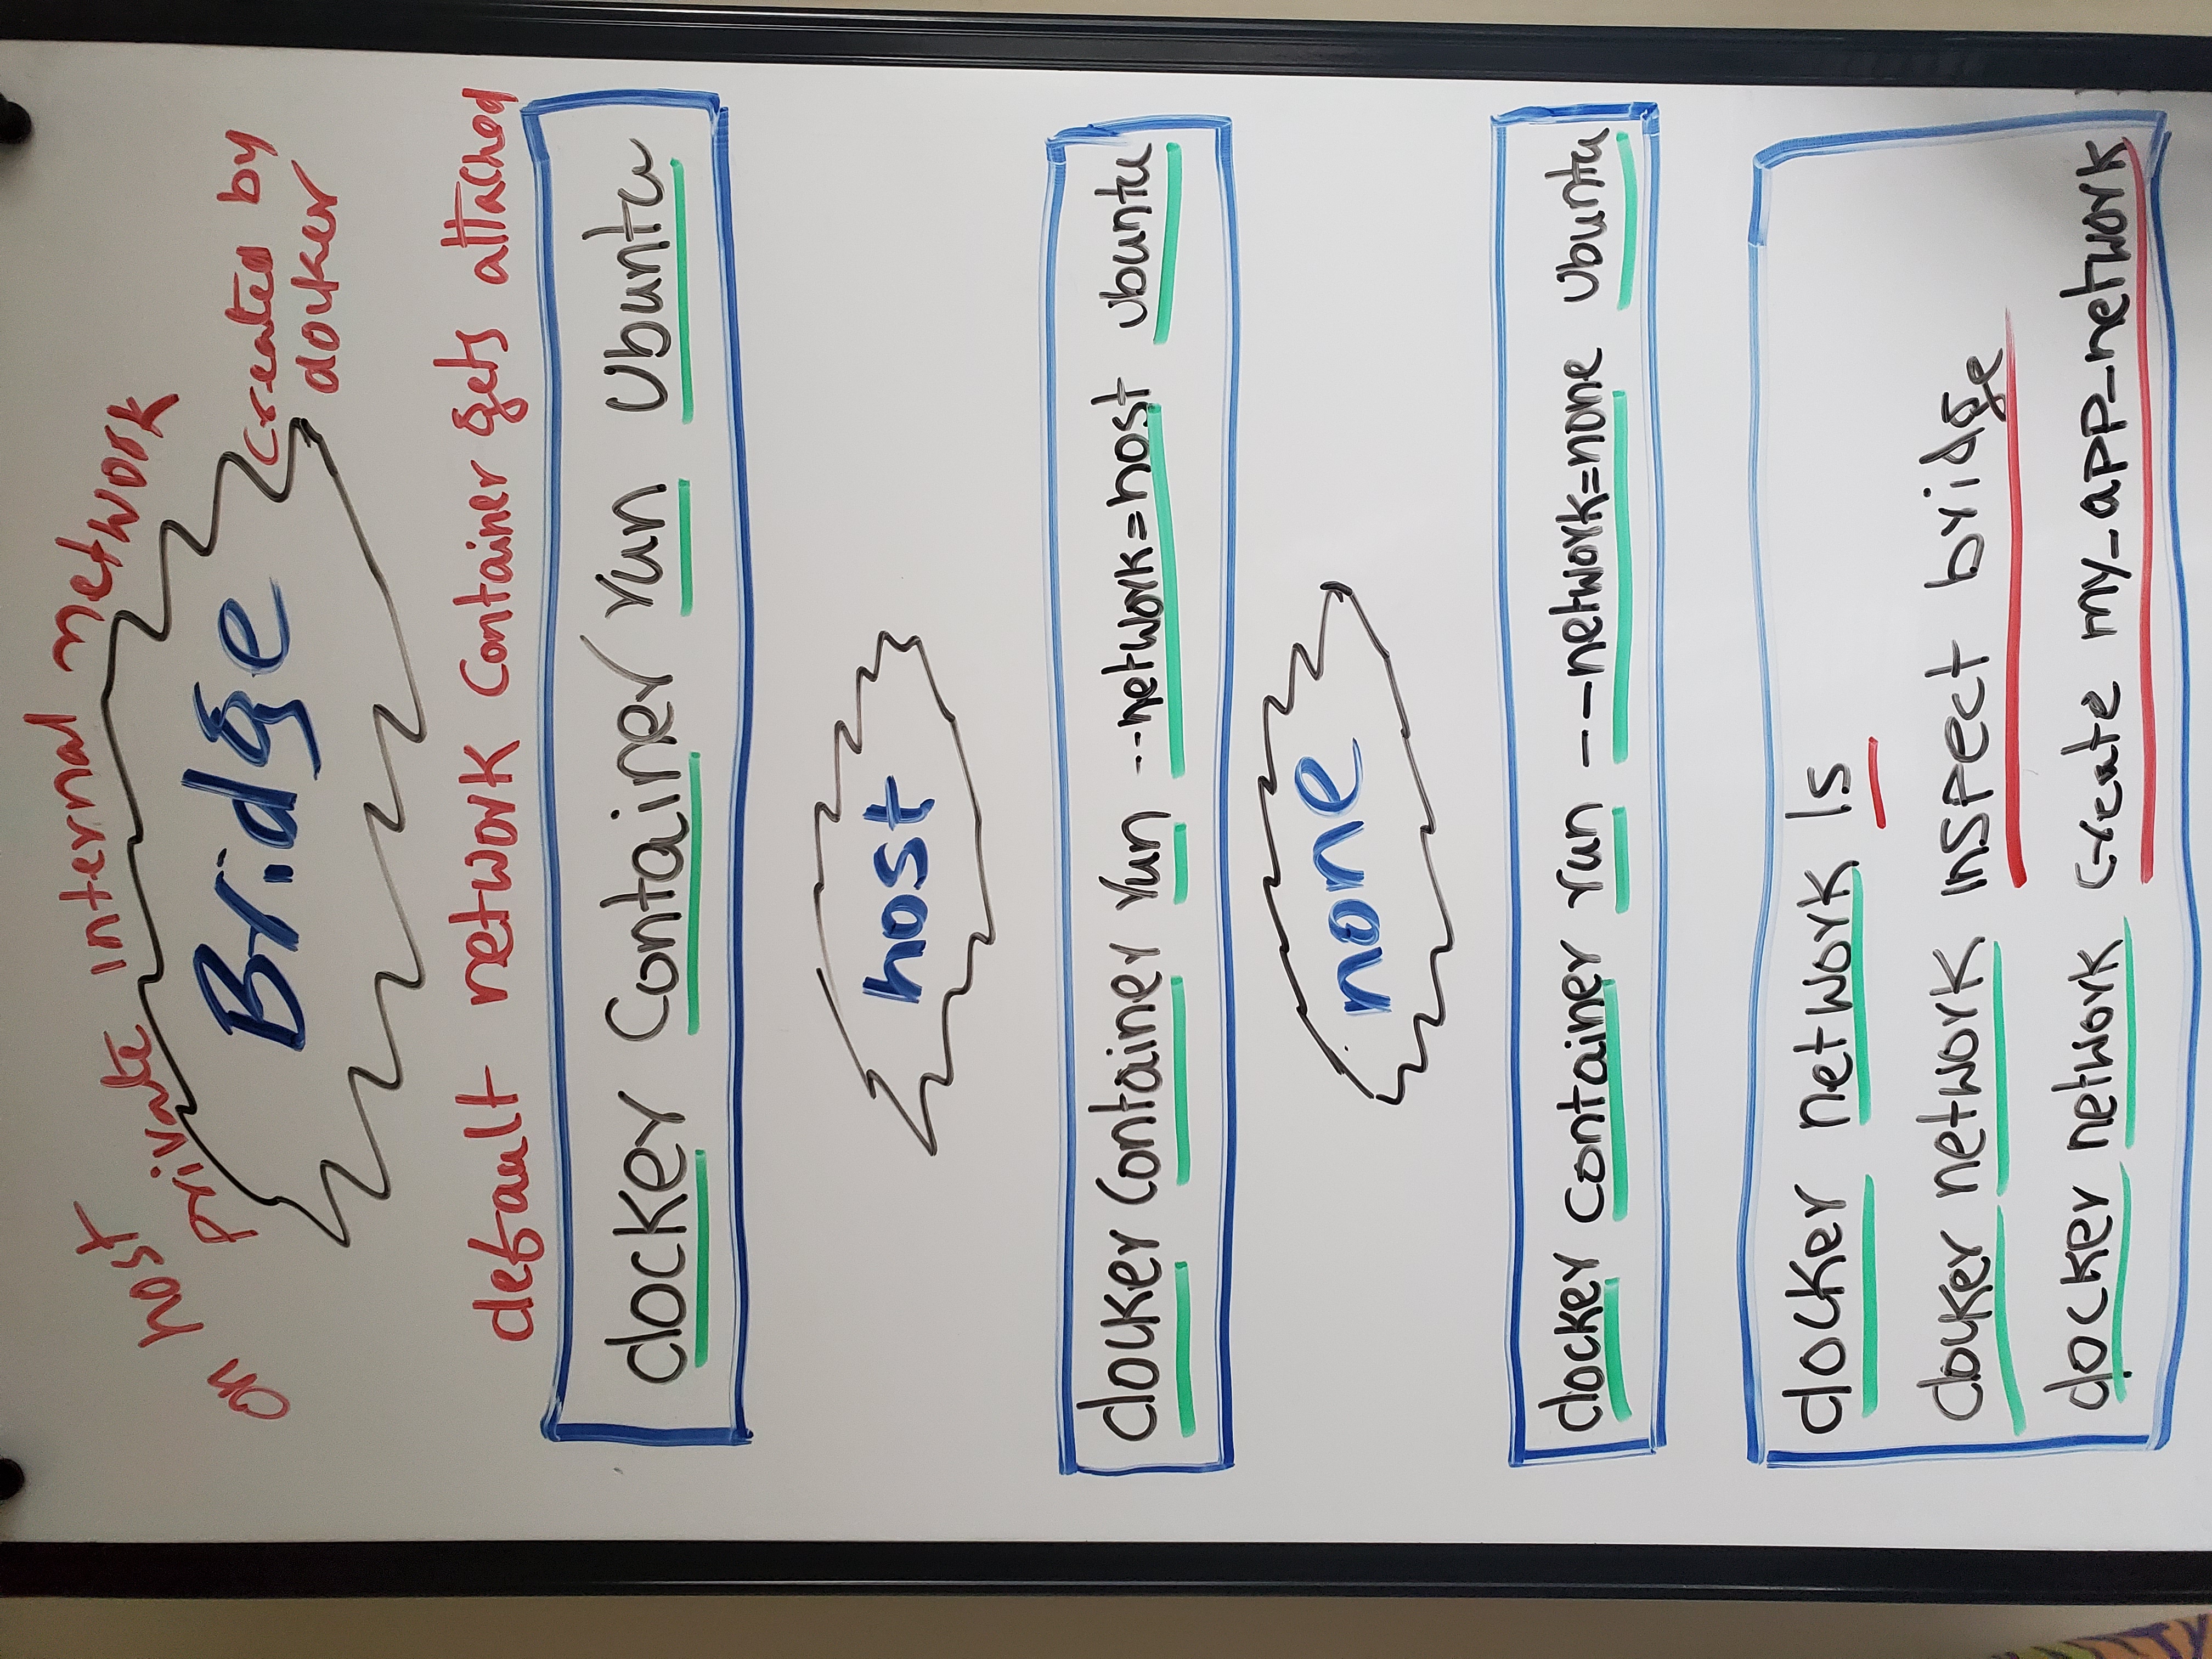 on host private internal network
Bridge
created by
docker
default network container gets attached
docker container run ubuntu
host
docker container run --network=host ubuntu
none
docker container run --network=none ubuntu
docker network ls
docker network inspect bridge
docker network create my_app_network